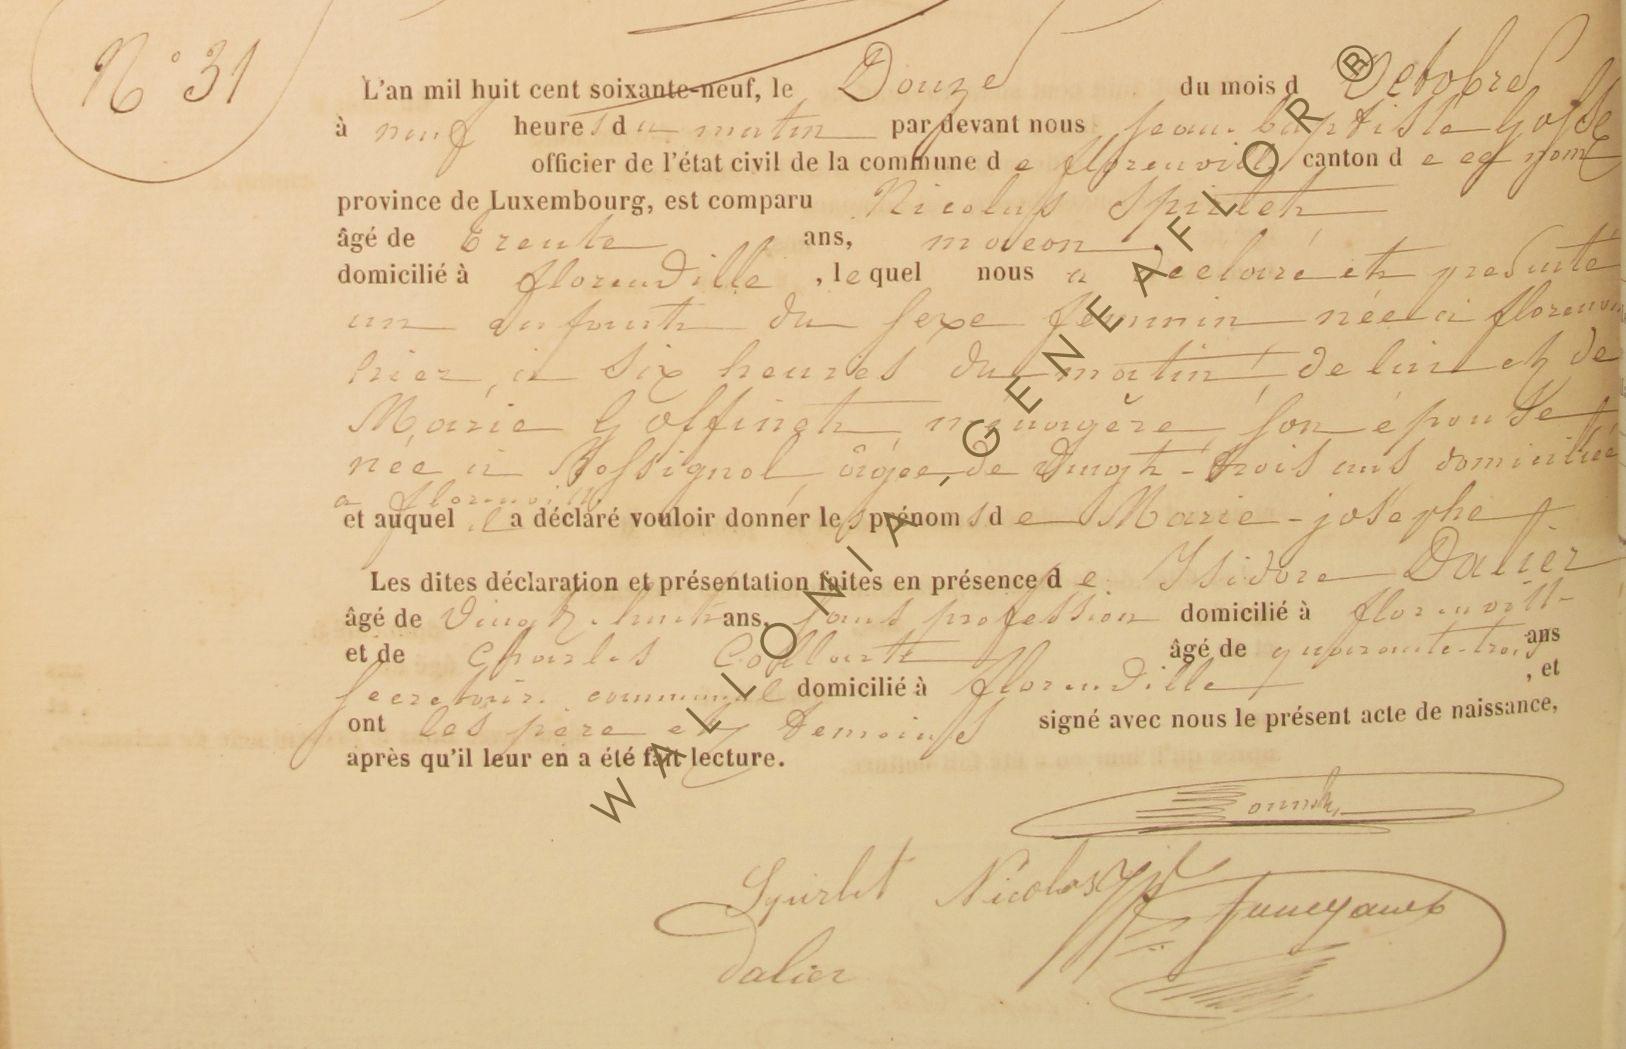 N° 31
L'an mil huit cent soixante-neuf, le Douze du mois d'Octobre
à neuf heures du matin par devant nous jean baptiste
officier de l'état civil de la commune de florenville canton de
province de Luxembourg, est comparu Nicolas Spirlet
âgé de trente ans, maçon
domicilié à florenville, lequel nous a déclaré et presenté
un enfant du sexe feminin née à
hier, à six heures du matin de lui et de
Marie Goffinet ménagère son épouse
née à Rossignol, âgée de vingt-trois ans domiciliée
a
et auquel il a déclaré vouloir donner les prénoms de Marie-josephe
Les dites déclaration et présentation faites en présence de Isidore Dalier
âgé de vingt-huit ans, sans profession domicilié à
et de Charles Collart âgé de quarante-trois ans
secretaire communal domicilié à florenville, et
ont les père et temoins signé avec nous le présent acte de naissance,
après qu'il leur en a été fait lecture.
Spirlet Nicolas
Dalier
WALLONIA-GENEAFLOR ®